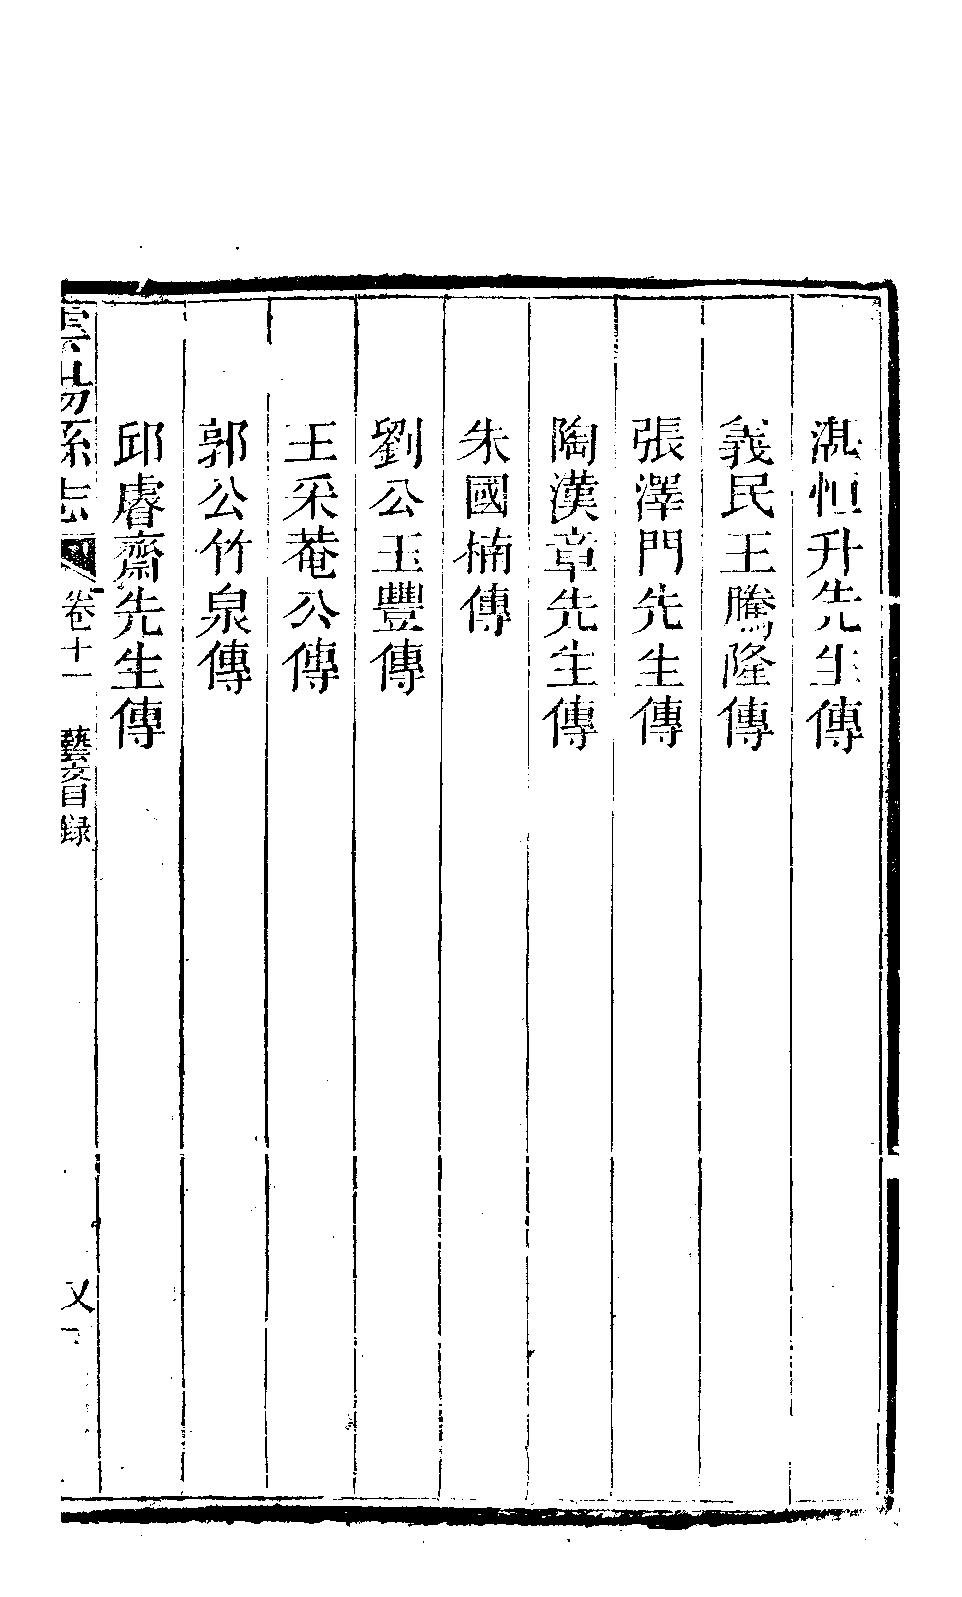 湛恒升先生傳
義民王騰隆傳
張澤門先生傳
陶漢章先生傳
朱國楠傳
劉公玉豐傳
王采菴公傳
郭公竹泉傳
邱睿齋先生傳
雲陽縣志 卷十一 藝文目錄 又一